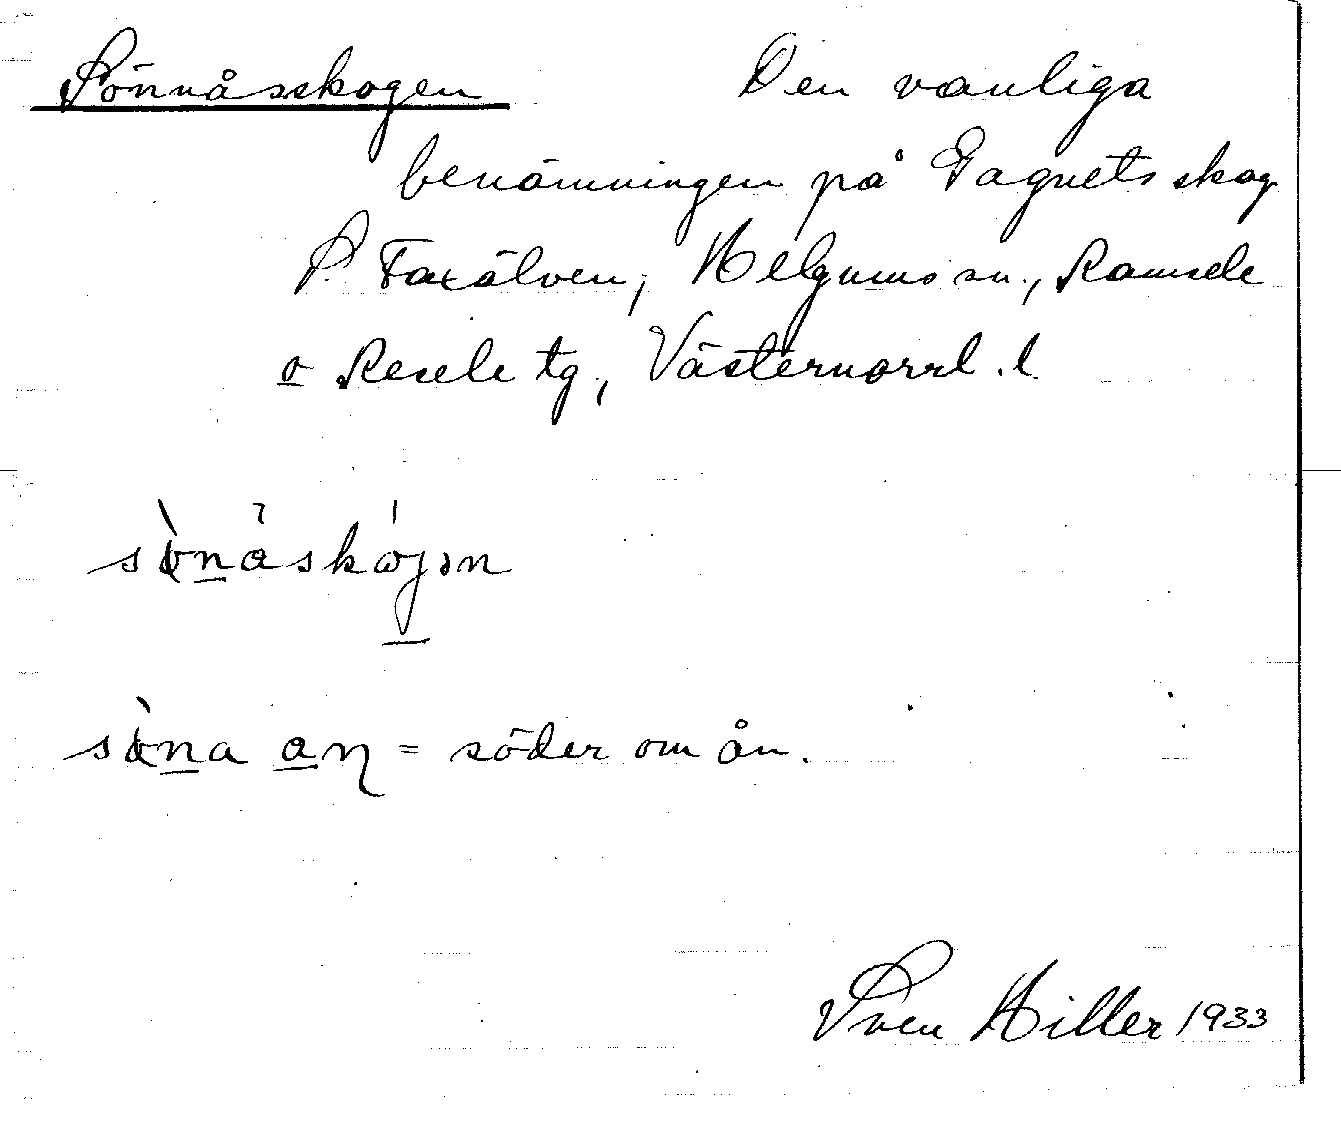 Sönnåsskogen Den vanliga
benämningen på Gagnets skog
S. Faxälven, Helgums sn., Ramsele
o Resele tg, Västernorrl. l.
sònåskójən
sòna an = söder om ån.
Sven Hiller 1933